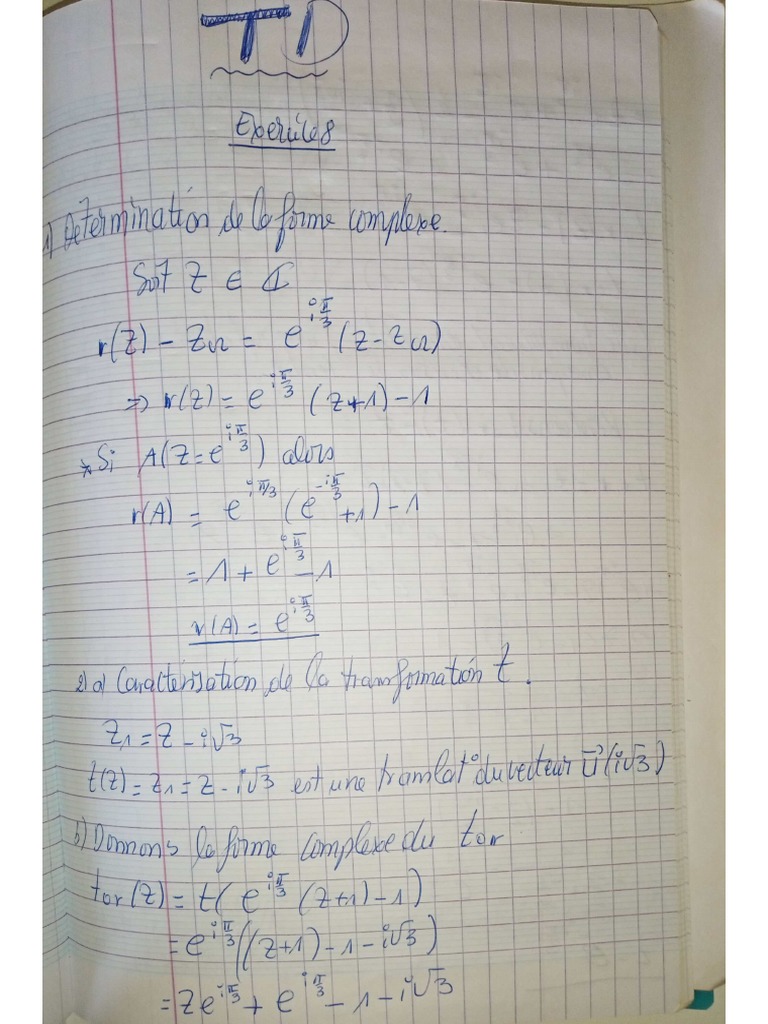 TD
Exercice 8
1) Determination de la forme complexe.
Soit Z ∈ ℂ
r(Z) - ZΩ = e^{iπ/3} (Z - ZΩ)
=> r(Z) = e^{iπ/3} (Z+1) - 1
* Si A(Z = e^{iπ/3}) alors
r(A) = e^{iπ/3} (e^{-iπ/3} + 1) - 1
= 1 + e^{iπ/3} - 1
r(A) = e^{iπ/3}
2) a) Caractérisation de la transformation t.
Z1 = Z - i√3
t(Z) = Z1 = Z - i√3 est une translat° du vecteur u⃗(i√3)
b) Donnons la forme complexe du tor
tor(Z) = t(e^{iπ/3} (Z+1) - 1)
= e^{iπ/3}((Z+1) - 1 - i√3)
= Ze^{iπ/3} + e^{iπ/3} - 1 - i√3